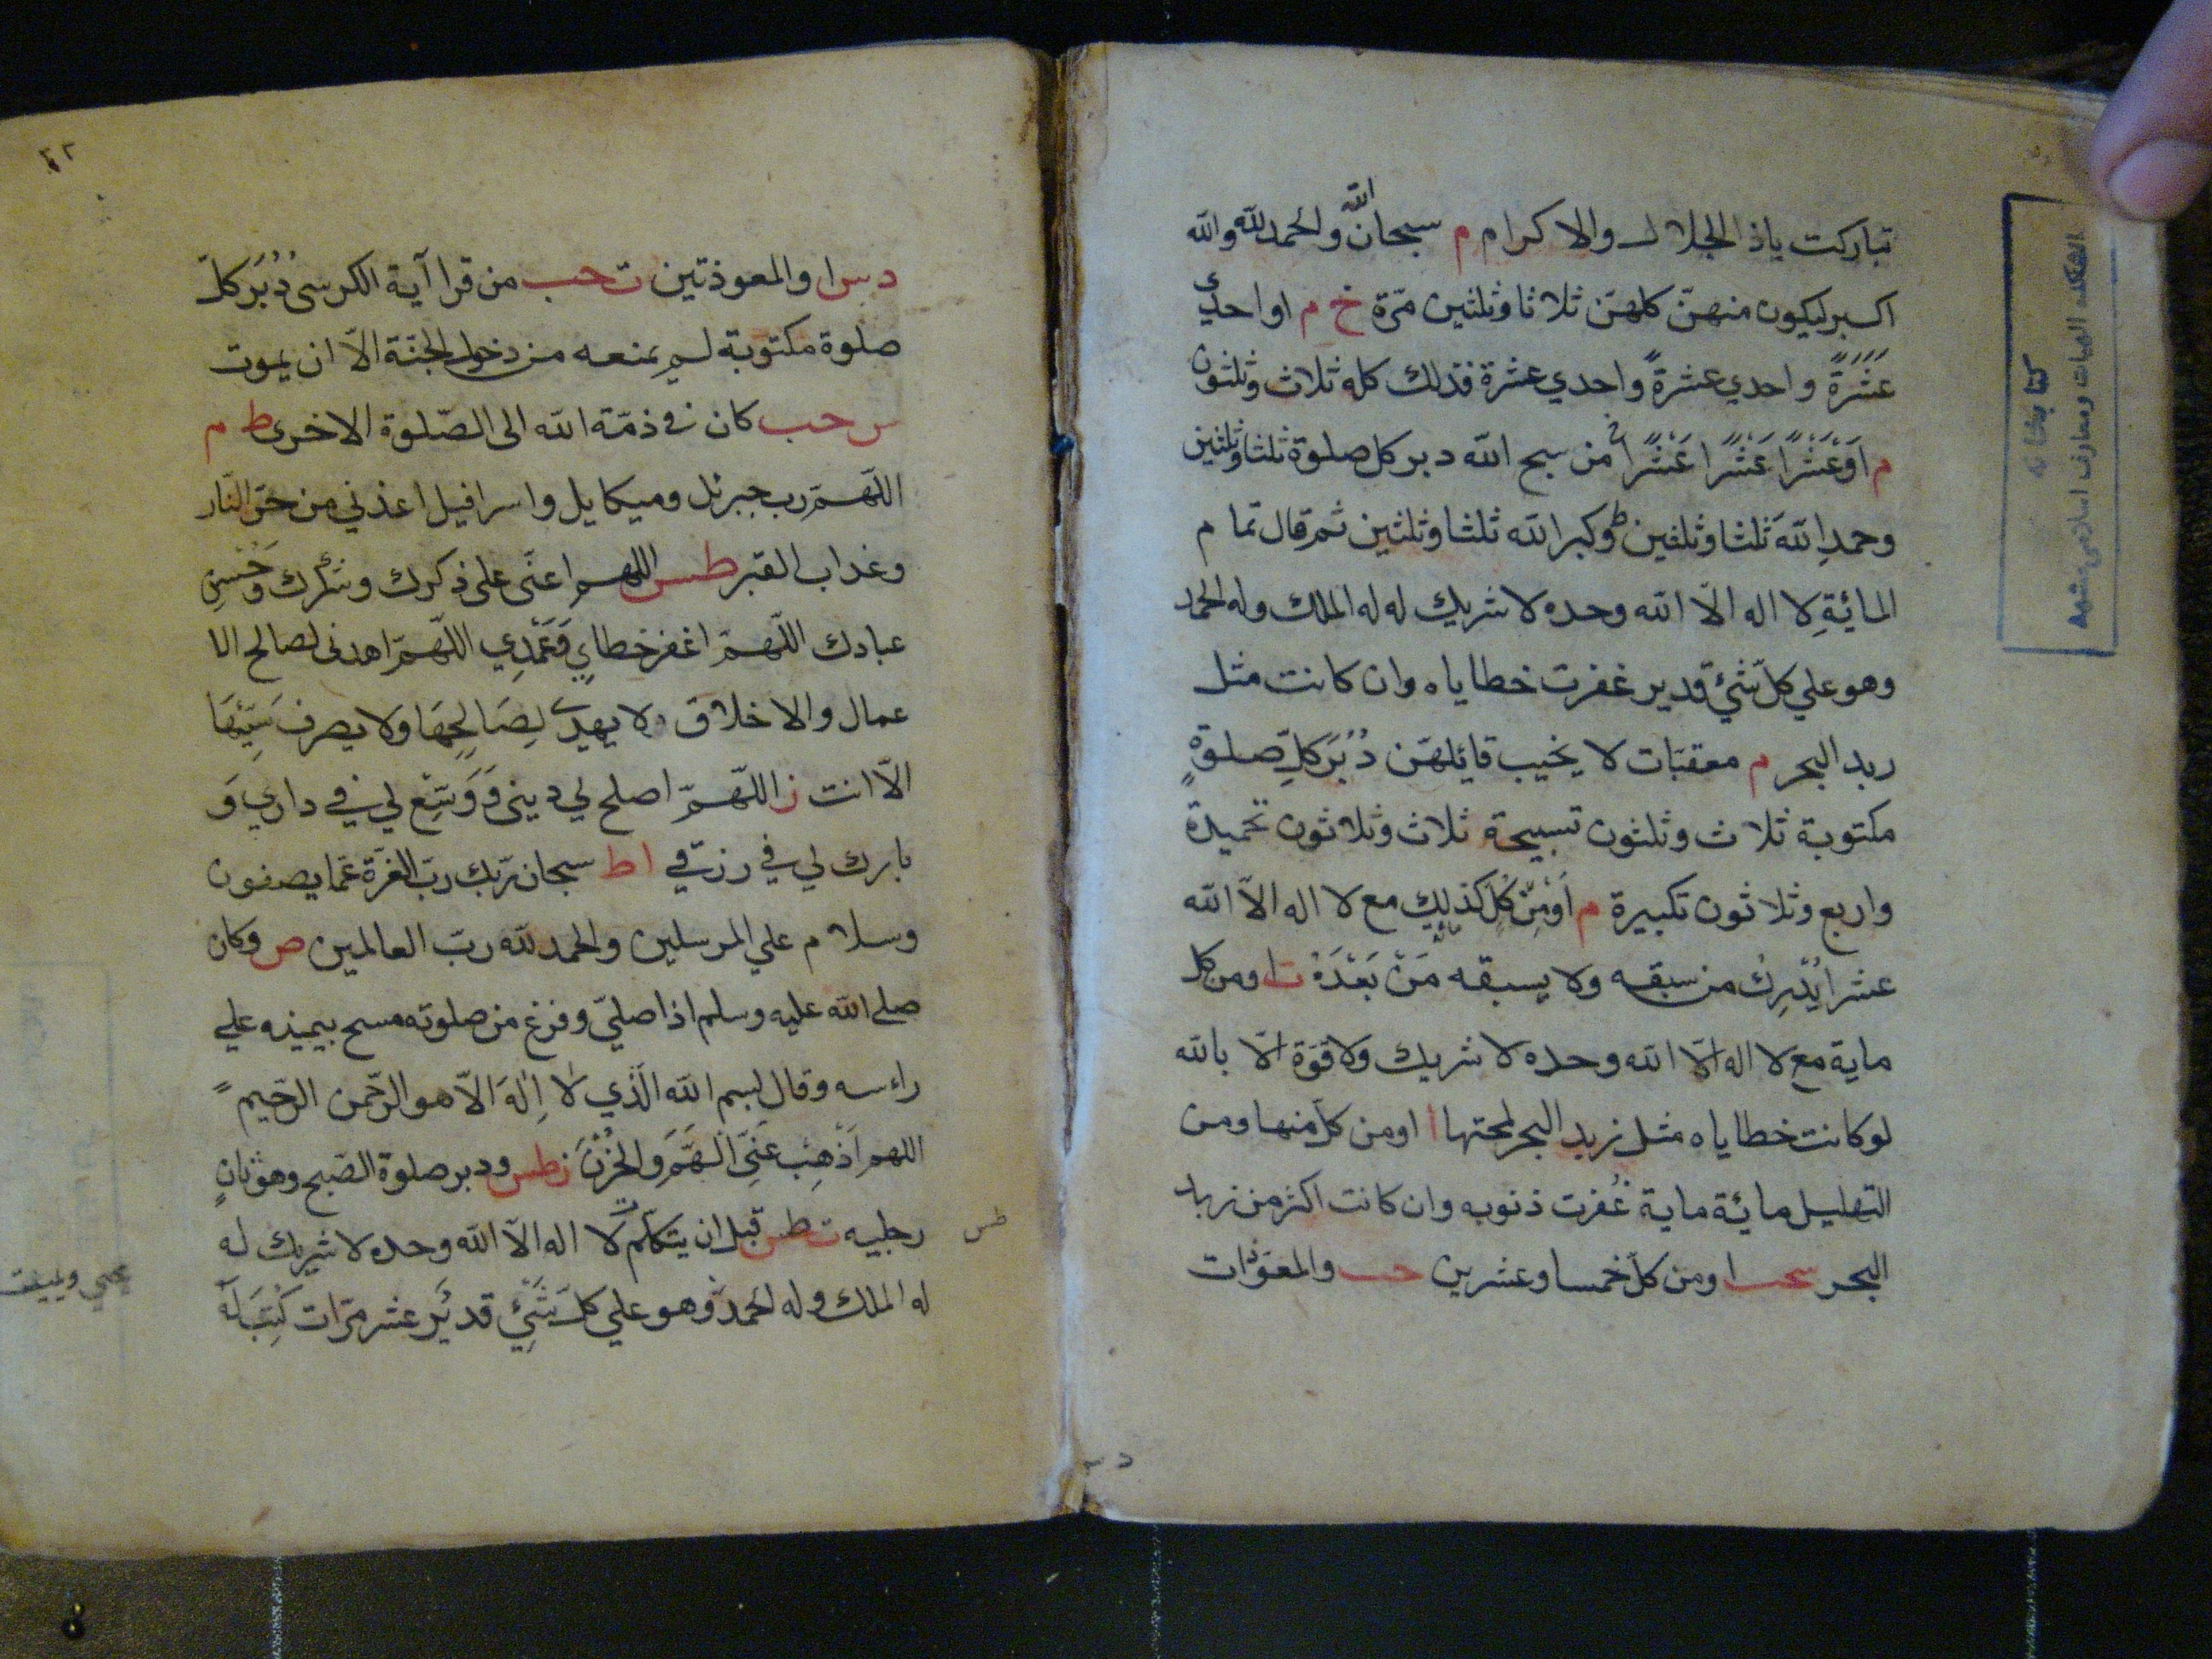 تباركت ياذا الجلال والاكرام م سبحان الله والحمد لله والله
اكبر ليكون منهنّ كلهنّ ثلاثا وثلثين مرّة خ م او احدي
عَشْرَةً واحدي عشرةً واحدي عشرة فذلك كله ثلاث وثلثون
م اَوْعَشْرًا عَشْرًا عَشْرًا من سبح الله دبر كل صلوة ثلثا وثلثين
وحمدِ اللّهَ ثلثا وثلثين وكبر الله ثلثا وثلثين ثم قال تمام
المائيةِ لا اله الّا الله وحده لا شريك له له الملك وله الحمد
وهو علي كلّ شيْ قدير غفرت خطاياه وان كانت مثل
زبد البحر م معقبّات لا يخيب قائلهنّ دُبُرَ كلِّ صلوةٍ
مكتوبة ثلاث وثلثون تسبيحة ثلاث وثلاثون تحميدة
واربع وثلاثون تكبيرة م اَوْمِنْ كُلِّ كذلك مع لا اله الّا الله
عشرا يُدْرِكُ من سبقه ولا يسبقه مَنْ بَعْدَهُ ت ا ومن كل
ماية مع لا اله الّا الله وحده لا شريك ولا قوّة الّا بالله
لو كانت خطاياه مثل زبد البحر لمحتها ا اومن كلّ منها ومن
التهليل مائية ماية غُفرت ذنوبه وان كانت اكثر من زبد
البحر س ا ومن كلّ خمسا وعشرين حب والمعوّذات
د س
كتابخانه
دانشكده الهيات ومعارف اسلامى مشهد
٤٢
د س ا والمعوذتين ت حب من قرا آية الكرسي دُبُرَ كلّ
صلوة مكتوبة لم يمنعه من دخول الجنّة الّا ان يموت
س حب كان في ذمّة الله الى الصّلوة الاخرى ط م
اللّهمّ رب جبرئل وميكايل واسرافيل اعذني من حرّ النّار
وعذاب القبر طس اللهم اعنّى على ذكرك وشكرك وحُسْنِ
عبادك اللّهمّ اغفر خطاي وَعَمْدِي اللّهمّ اهدنى لصالح الا
عمال والاخلاق لا يهدى لِصَالِحِهَا ولا يصرف سَيّئِهَا
الّا انت ز اللّهمّ اصلح لي دينى وَوَسِّعْ لي في داري وَ
بارك لي في رزقي ا ط سبحان ربّك ربّ العزّة عمّا يصفون
وسلام علي المرسلين والحمد لله ربّ العالمين ص وكان
صلي الله عليه وسلم اذا صليّ وفرغ من صلوته مسح بيمينه علي
راءسه وقال بسم الله الّذي لا اِلهَ الّا هو الرّحمن الرّحيم
اللهم اَذْهِبْ عَنِّى الْهَمَّ وَالْحُزْنَ ز طس ودبر صلوة الصّبح وهو ثانٍ
رجليه ت طس قبل ان يتكلّم لا اله الّا الله وحده لا شريك له
طس
له الملك وله الحمد وهو علي كلّ شَيْئٍ قدير عشر مرّات كُتِبَ لَهُ
يحيي ويميت